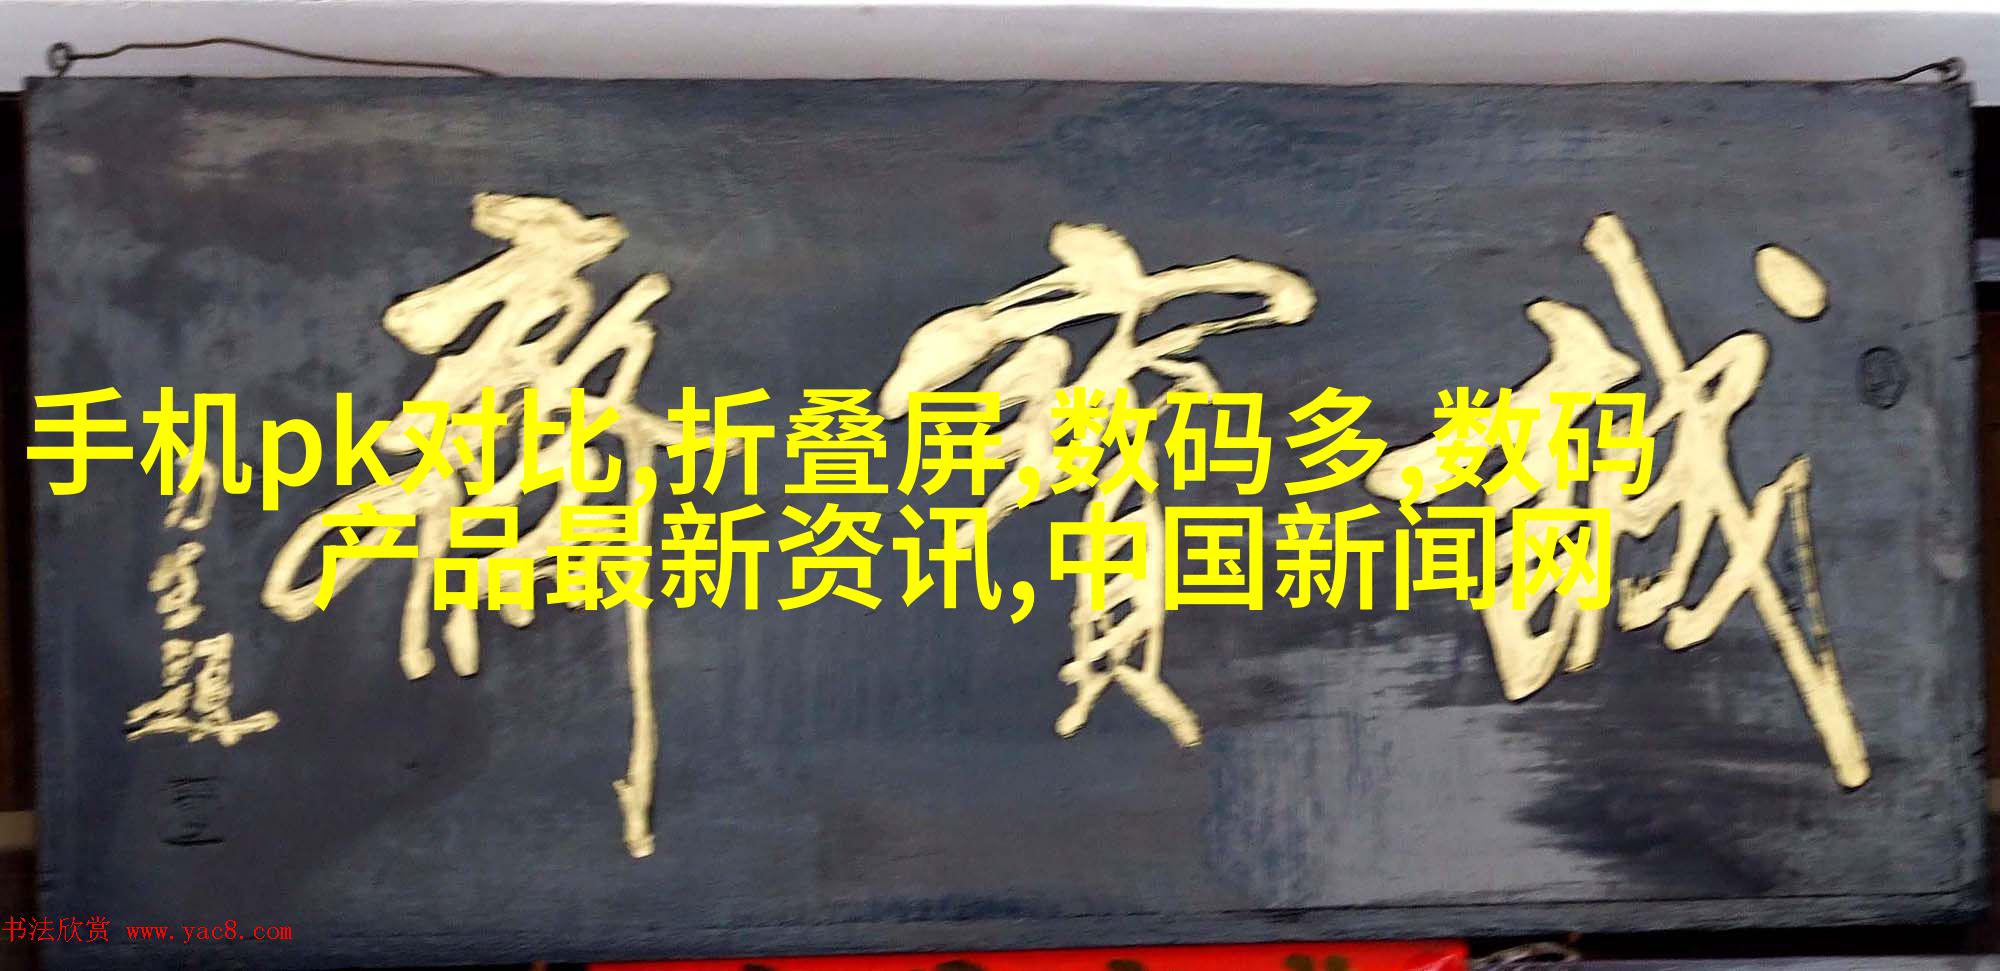 誠寶齋
手机pk对比,折叠屏,数码多,数码
产品最新资讯,中国新闻网
书法欣赏 www.yac8.com